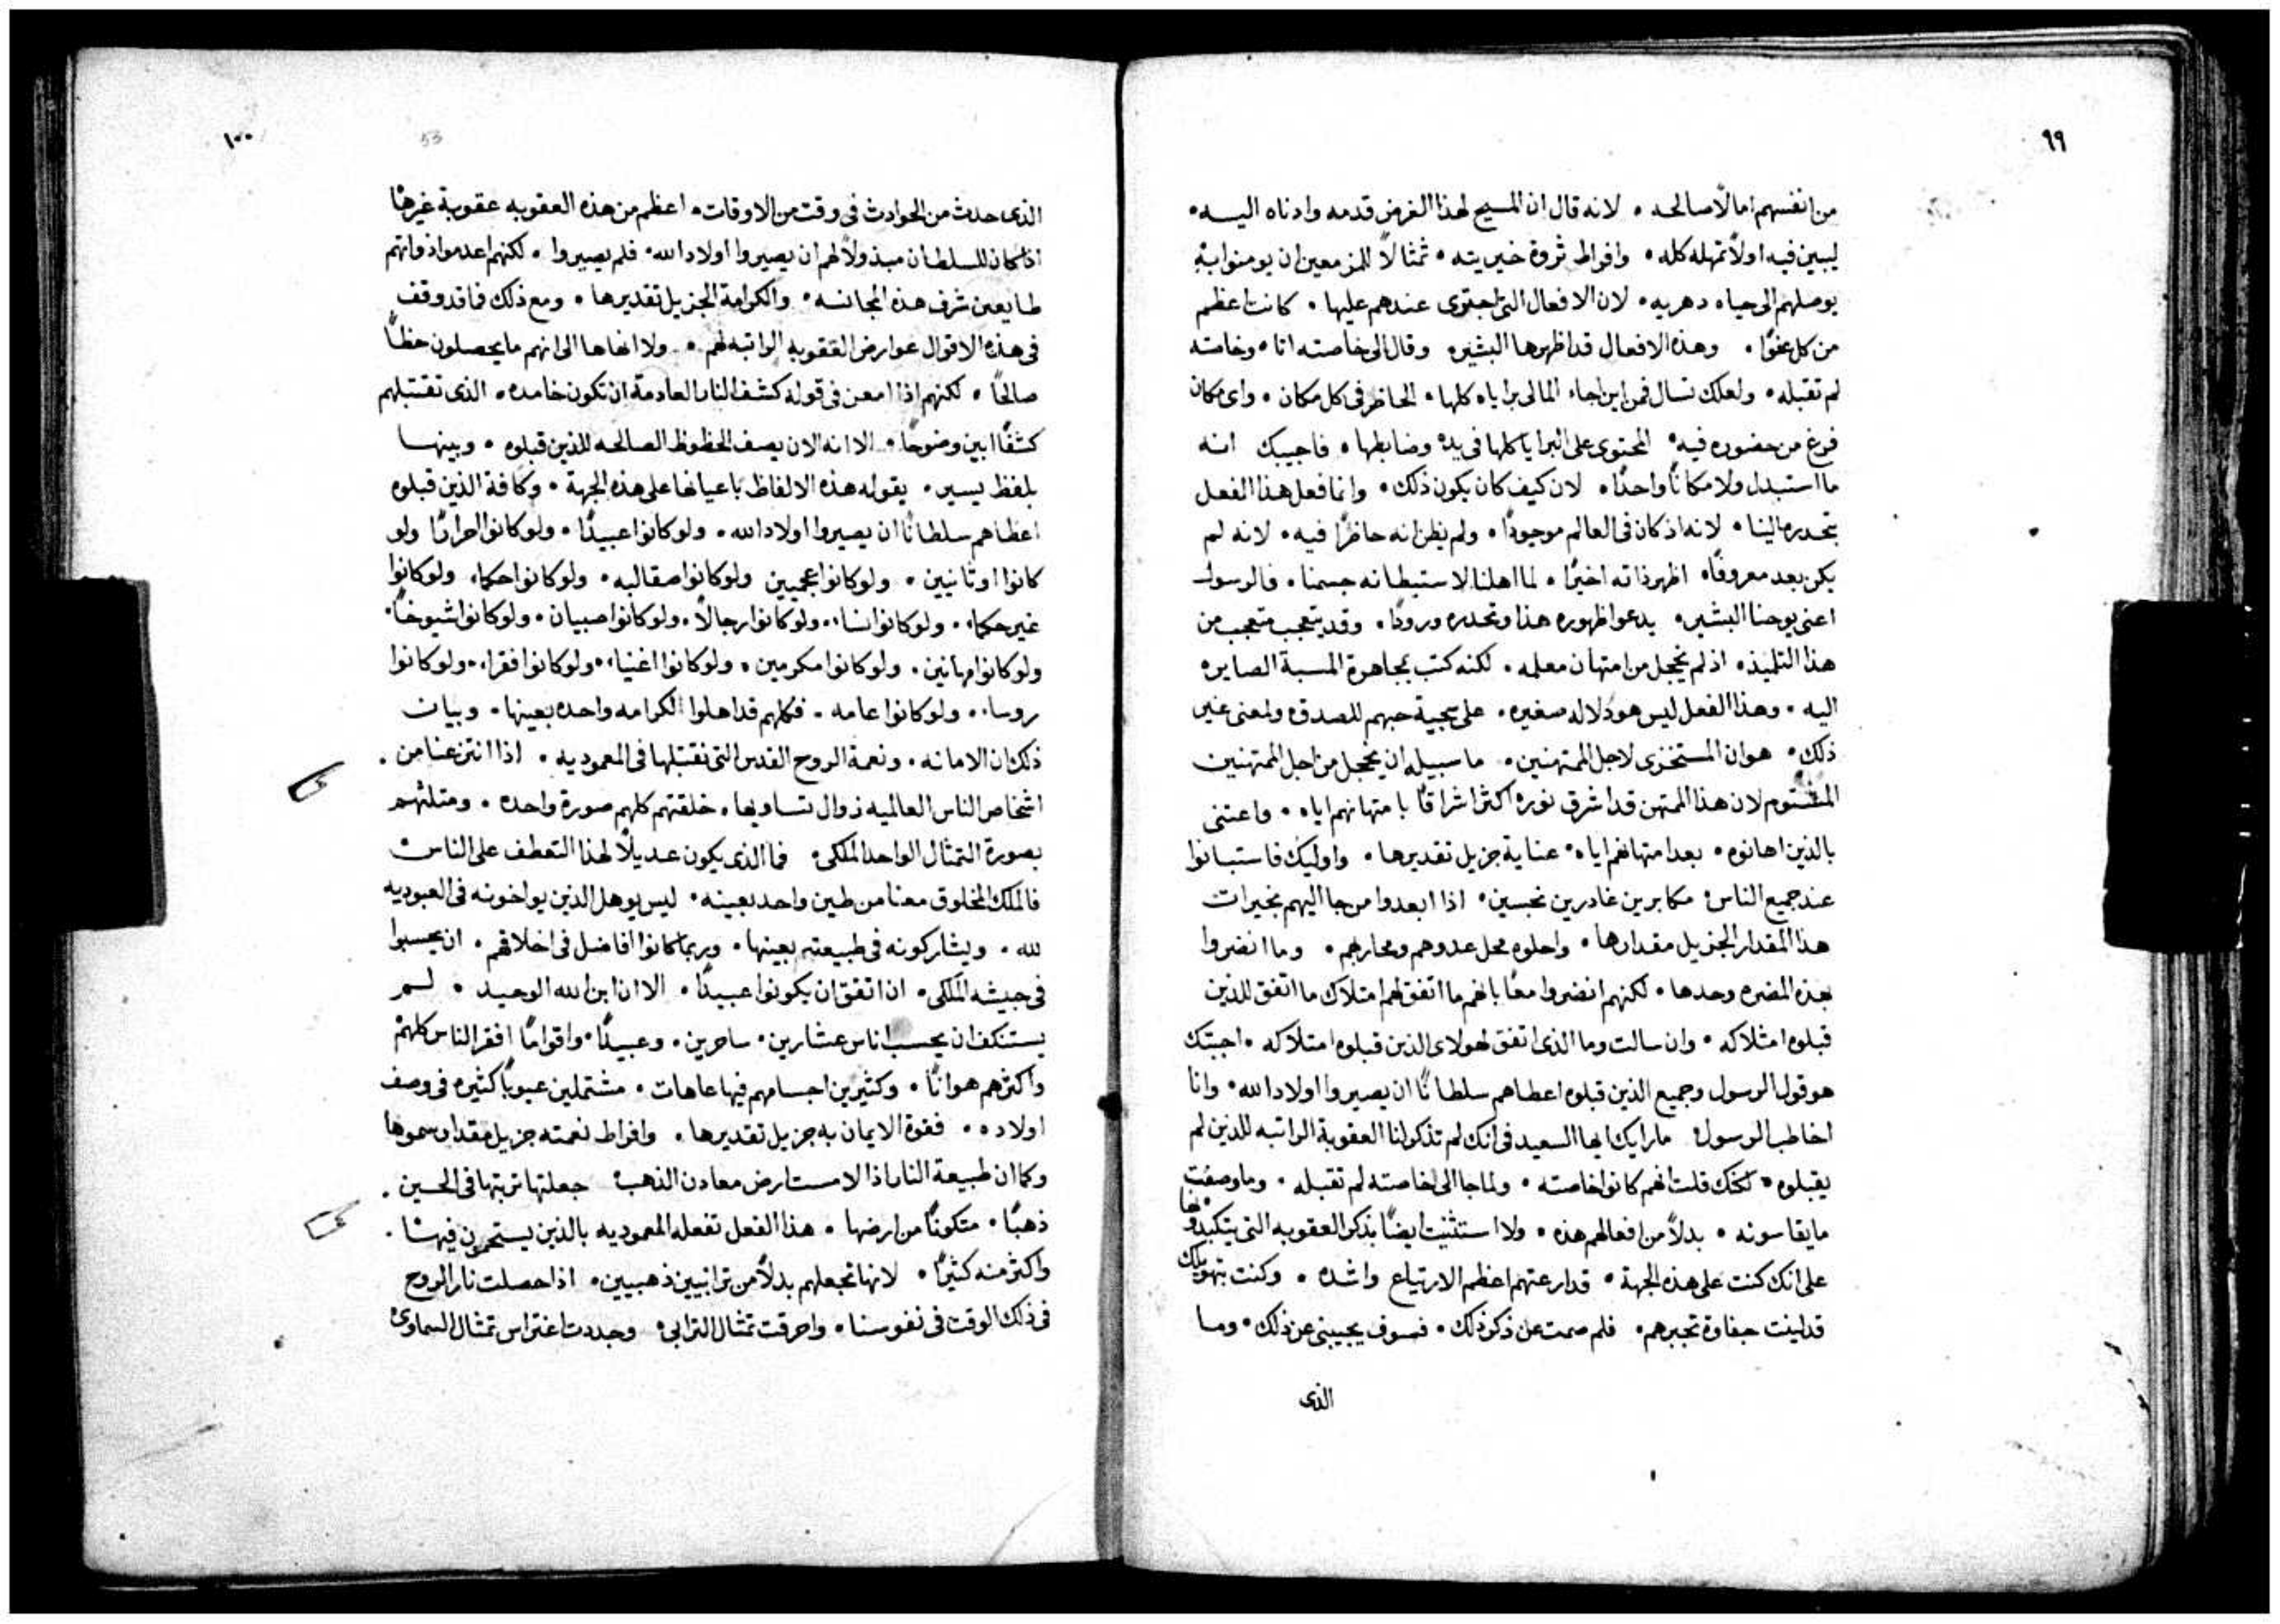 ٩٩
من انفسهم امالًا صالحه . لانه قال ان المسيح لهذا الغرض قدمه وادناه اليه .
ليبين فيه اولًا تمهله كله . وافراط ثروة خيريته . تمثالًا للمزمعين ان يومنوا به
يوصلهم الى حياه دهريه . لان الافعال التى اجتوى عندهم عليها . كانت اعظم
من كل عفوًا . وهذه الافعال قد اظهرها البشير وقال الى خاصته اتا . وخاصته
لم تقبله . ولعلك تسال فمن اين اجاء المالى براياه كلها . الحاظر فى كل مكان . واى مكان
فرغ من حضوره فيه . المحتوى على البرايا كلها فى يده وضابطها . فاجيبك انه
ما استبدل ولا مكانًا واحدًا . لان كيف كان يكون ذلك . وانما فعل هذا الفعل
بتحدره الينا . لانه اذ كان فى العالم موجودًا . ولم يظن انه حاظرًا فيه . لانه لم
يكن بعد معروفًا . اظهر ذاته اخيرًا . لما اهلنا لاستبطانه جسمنا . فالرسول
اعنى يوحنا البشير . يدعو اظهوره هذا وتحدره ورودًا . وقد يتعجب متعجب من
هذا التلميذ . اذ لم يخجل من امتهان معلمه . لكنه كتب بمجاهرة المسبة الصايره
اليه . وهذا الفعل ليس هو دلاله صغيره . على سجية حبهم للصدق ولمعنى غير
ذلك . هو ان المستخزى لاجل الممتهنين . ما سبيله ان يخجل من اجل الممتهنين
المشتوم لان هذا الممتهن قد اشرق نوره اكثر اشراقًا بامتهانهم اياه . واعتنى
بالذين اهانوه . بعد امتهانهم اياه . عناية جزيل تقديرها . واوليك فاستبانوا
عند جميع الناس مكابرين غادرين نجسين . اذا ابعدوا من جا اليهم بخيرات
هذا المقدار الجزيل مقدارها . واحلوه محل عدوهم ومحاربهم . وما انضروا
بهذه المضره وحدها . لكنهم انضروا معًا بانهم ما اتفق لهم امتلاك ما اتفق للذين
قبلوه امتلاكه . وان سالت وما الذى اتفق لهولاى الذين قبلوه امتلاكه . اجبتك
هو قول الرسول وجميع الذين قبلوه اعطاهم سلطانًا ان يصيروا اولاد الله . وانا
اخاطب الرسول ما رايك ايها السعيد فى انك لم تذكر لنا العقوبة الراتبه للذين لم
يقبلوه . لكنك قلت انهم كانوا خاصته . ولما جا الى خاصته لم تقبله . وما وصفت
ما يقاسونه . بدلًا من افعالهم هذه . ولا استثنيت ايضًا بذكر العقوبه التى يتكبدونها
على انك كنت على هذه الجهة . قد ارعتهم اعظم الارتياع واشده . وكنت بتهويلك
قد لينت جفاوة تجبرهم . فلم صمت عن ذكر ذلك . فسوف يجيبنى عن ذلك . وما
الذى
١٠٠
53
الذى حدث من الحوادث فى وقت من الاوقات . اعظم من هذه العقوبه عقوبة غيرها
اذا كان للسلطان مبذولًا لهم ان يصيروا اولاد الله . فلم يصيروا . لكنهم اعدموا ذواتهم
طايعين شرف هذه المجانسه . والكرامة الجزيل تقديرها . ومع ذلك فما قد وقف
فى هذه الاقوال عوارض العقوبه الراتبه لهم . ولا انهاها الى انهم ما يحصلون حظًا
صالحًا . لكنهم اذا امعن فى قوله كشف النار العادمة ان تكون خامده . الذى تقتبلهم
كشفًا ابين وضوحًا . الا انه الان يصف الحظوظ الصالحه للذين قبلوه . ويبينها
بلفظ يسير . بقوله هذه الالفاظ باعيانها على هذه الجهة . وكافة الذين قبلوه
اعطاهم سلطانًا ان يصيروا اولاد الله . ولو كانوا عبيدًا . ولو كانوا احرارًا ولو
كانوا اوثانيين . ولو كانوا عجميين ولو كانوا صقالبه . ولو كانوا حكماء ولو كانوا
غير حكماء . ولو كانوا نساء . ولو كانوا رجالًا . ولو كانوا صبيان . ولو كانوا شيوخًا .
ولو كانوا مهانين . ولو كانوا مكرومين . ولو كانوا اغنياء . ولو كانوا فقراء . ولو كانوا
روساء . ولو كانوا عامه . فكلهم قد اهلوا لكرامه واحده بعينها . وبيان
ذلك ان الامانه . ونعمة الروح القدس التى نقتبلها فى المعموديه . اذا انتزعنا من .
اشخاص الناس العالميه زوال تساويها . خلقتهم كلهم صورة واحده . ومثلتهم
بصورة التمثال الواحد الملكى . فما الذى يكون عديلًا لهذا التعطف على الناس
فالملك المخلوق معنا من طين واحد بعينه . ليس يوهل الذين يواخونه فى العبوديه
لله . ويشاركونه فى طبيعته بعينها . وربما كانوا افاضل فى اخلاقهم . ان يحسبوا
فى جيشه الملكى . ان اتفق ان يكونوا عبيدًا . الا ان ابن الله الوحيد . لم
يستنكف ان يحسب اناس عشارين . ساحرين . وعبيدًا . واقوامًا افقر الناس كلهم
واكثرهم هوانًا . وكثيرين اجسامهم فيها عاهات . مشتملين عيوبًا كثيره فى وصف
اولاده . فقوة الايمان به جزيل تقديرها . وافراط نعمته جزيل مقدار سموها
وكما ان طبيعة النار اذا لامست ارض معادن الذهب جعلتها تربتها فى الحين .
ذهبًا . متكونًا من ارضها . هذا الفعل تفعله المعموديه بالذين يستحمون فيها .
واكثر منه كثيرًا . لانها تجعلهم بدلًا من ترابيين ذهبيين . اذا حصلت نار الروح
فى ذلك الوقت فى نفوسنا . واحرقت تمثال الترابى وجددت اغتراس تمثال السماوى